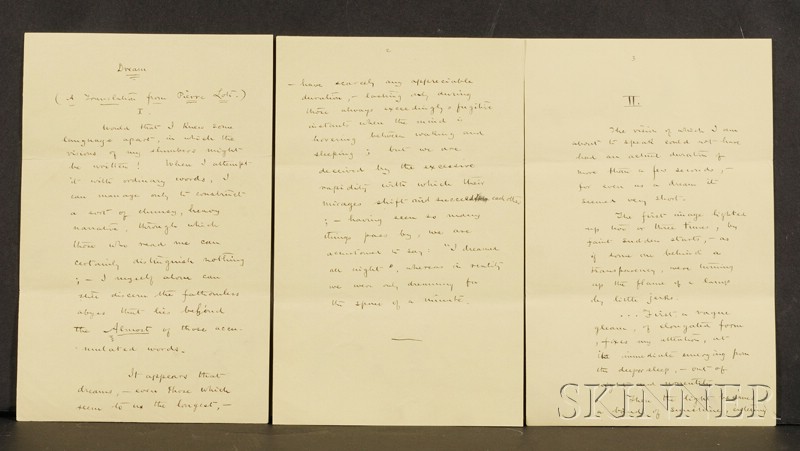 Dream
(A Translation from Pierre Loti.)
I.
Would that I knew some
language apart, in which the
visions of my slumbers might
be written! When I attempt
it with ordinary words, I
can manage only to construct
a sort of clumsy, heavy
narrative, through which
those who read me can
certainly distinguish nothing
; – I myself alone can
still discern the fathomless
abyss that lies behind
the Almost of those accu-
mulated words.
It appears that
dreams, – even those which
seem to us the longest, –
2
– have scarcely any appreciable
duration, – lasting only during
those always exceedingly fugitive
instants when the mind is
hovering between waking and
sleeping; but we are
deceived by the excessive
rapidity with which their
mirages shift and succeed each other
; – having seen so many
things pass by, we are
accustomed to say: "I dreamed
all night", whereas in reality
we were only dreaming for
the space of a minute.
3
II.
The vision of which I am
about to speak could not have
had an actual duration of
more than a few seconds, –
for even as a dream it
seemed very short.
The first image lighted
up two or three times, by
faint sudden starts, – as
if some one behind a
transparency, were turning
up the flame of a lamp
by little jerks.
... First a vague
gleam, of elongated form
, fixes my attention, at
the immediate emerging from
the deeper sleep, – out of
Then the light becomes
a break of sunshine, entering
SKINNER